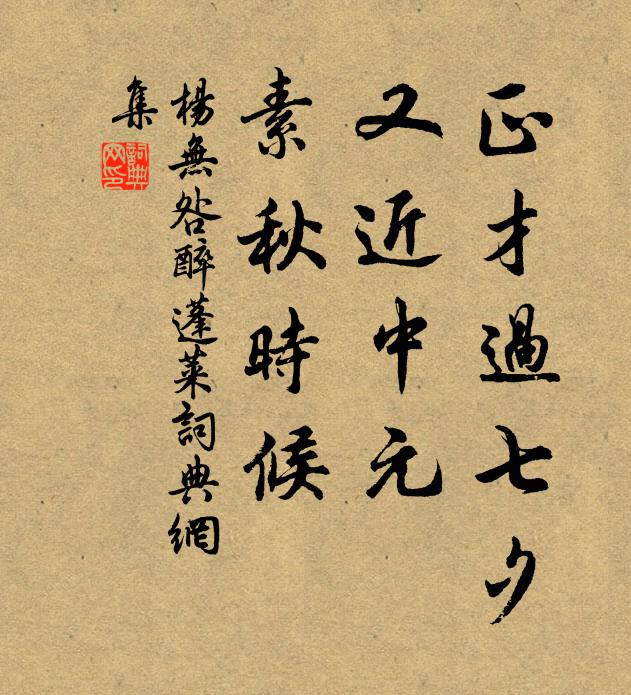 正才過七夕
又近中元
素秋時候
楊無咎醉蓬萊詞典網
集
詞典網印